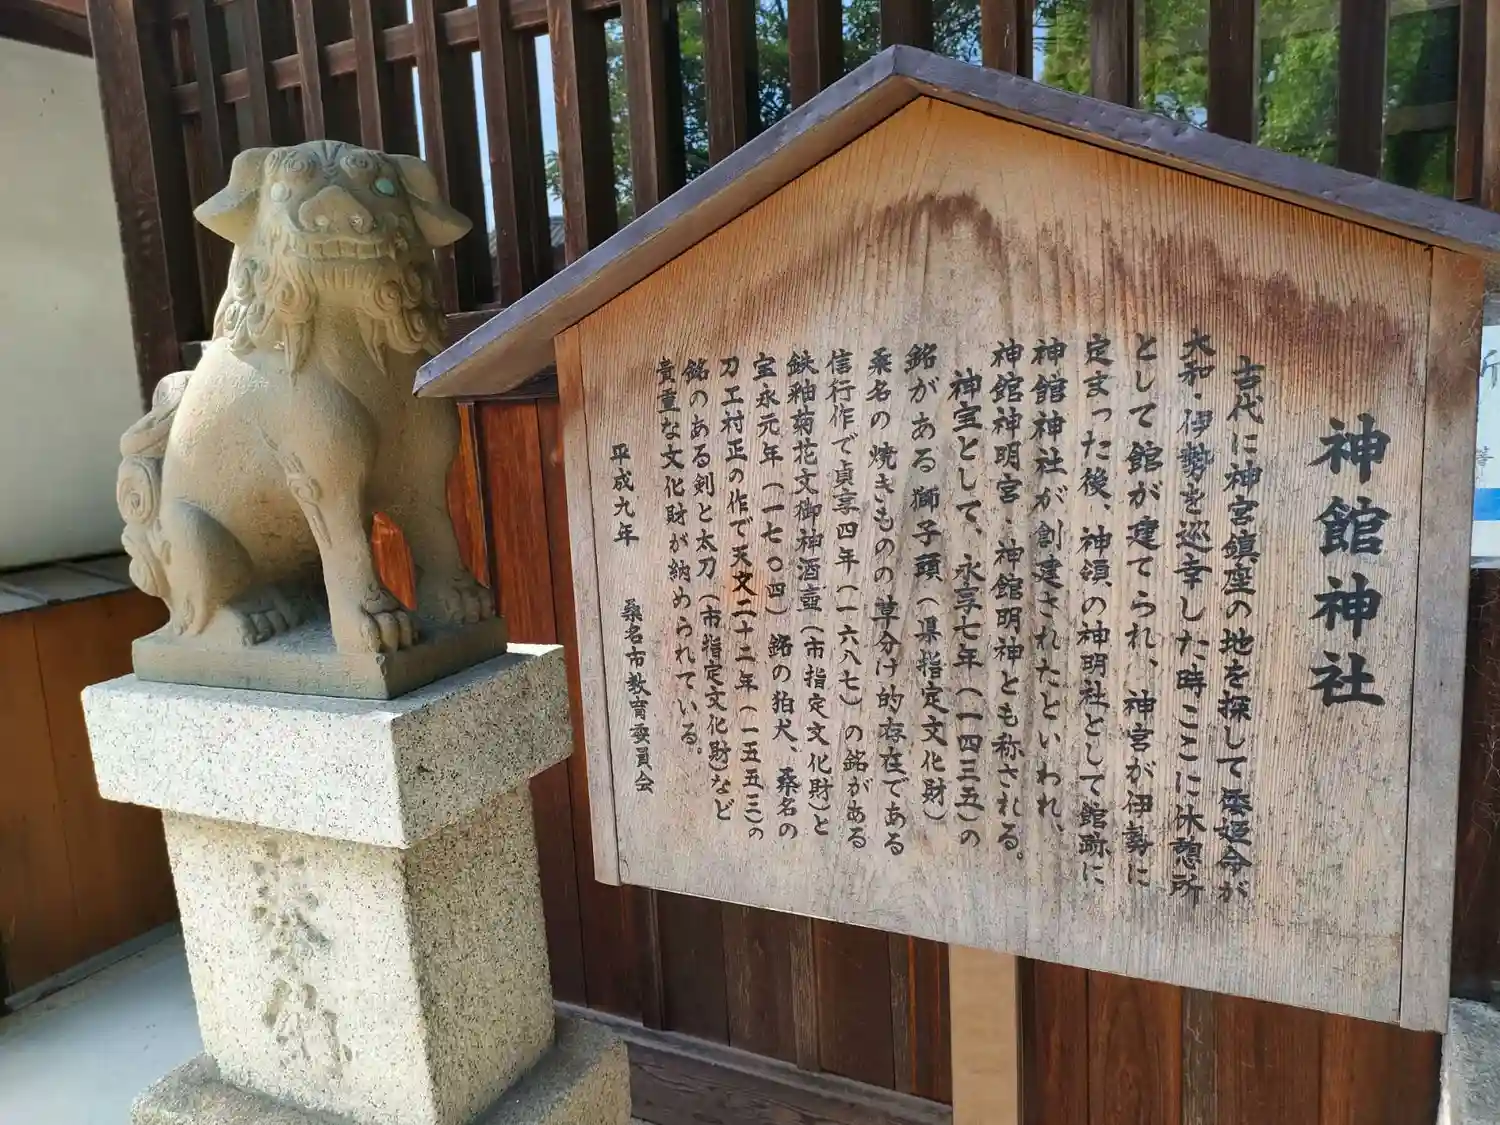 神館神社
古代に神宮鎮座の地を探して倭姫命が
大和・伊勢を巡幸した時ここに休憩所
として館が建てられ、神宮が伊勢に
定まった後、神領の神明社として館跡に
神館神社が創建されたといわれ、
神館神明宮・神館明神とも称される。
神宝として、永享七年(一四三五)の
銘がある獅子頭(県指定文化財)
桑名の焼きものの草分け的存在である
信行作で貞享四年(一六八七)の銘がある
鉄釉菊花文御神酒壺(市指定文化財)と
宝永元年(一七〇四)銘の狛犬、桑名の
刀工村正の作で天文二十二年(一五五三)の
銘のある剣と太刀(市指定文化財)など
貴重な文化財が納められている。
平成九年 桑名市教育委員会